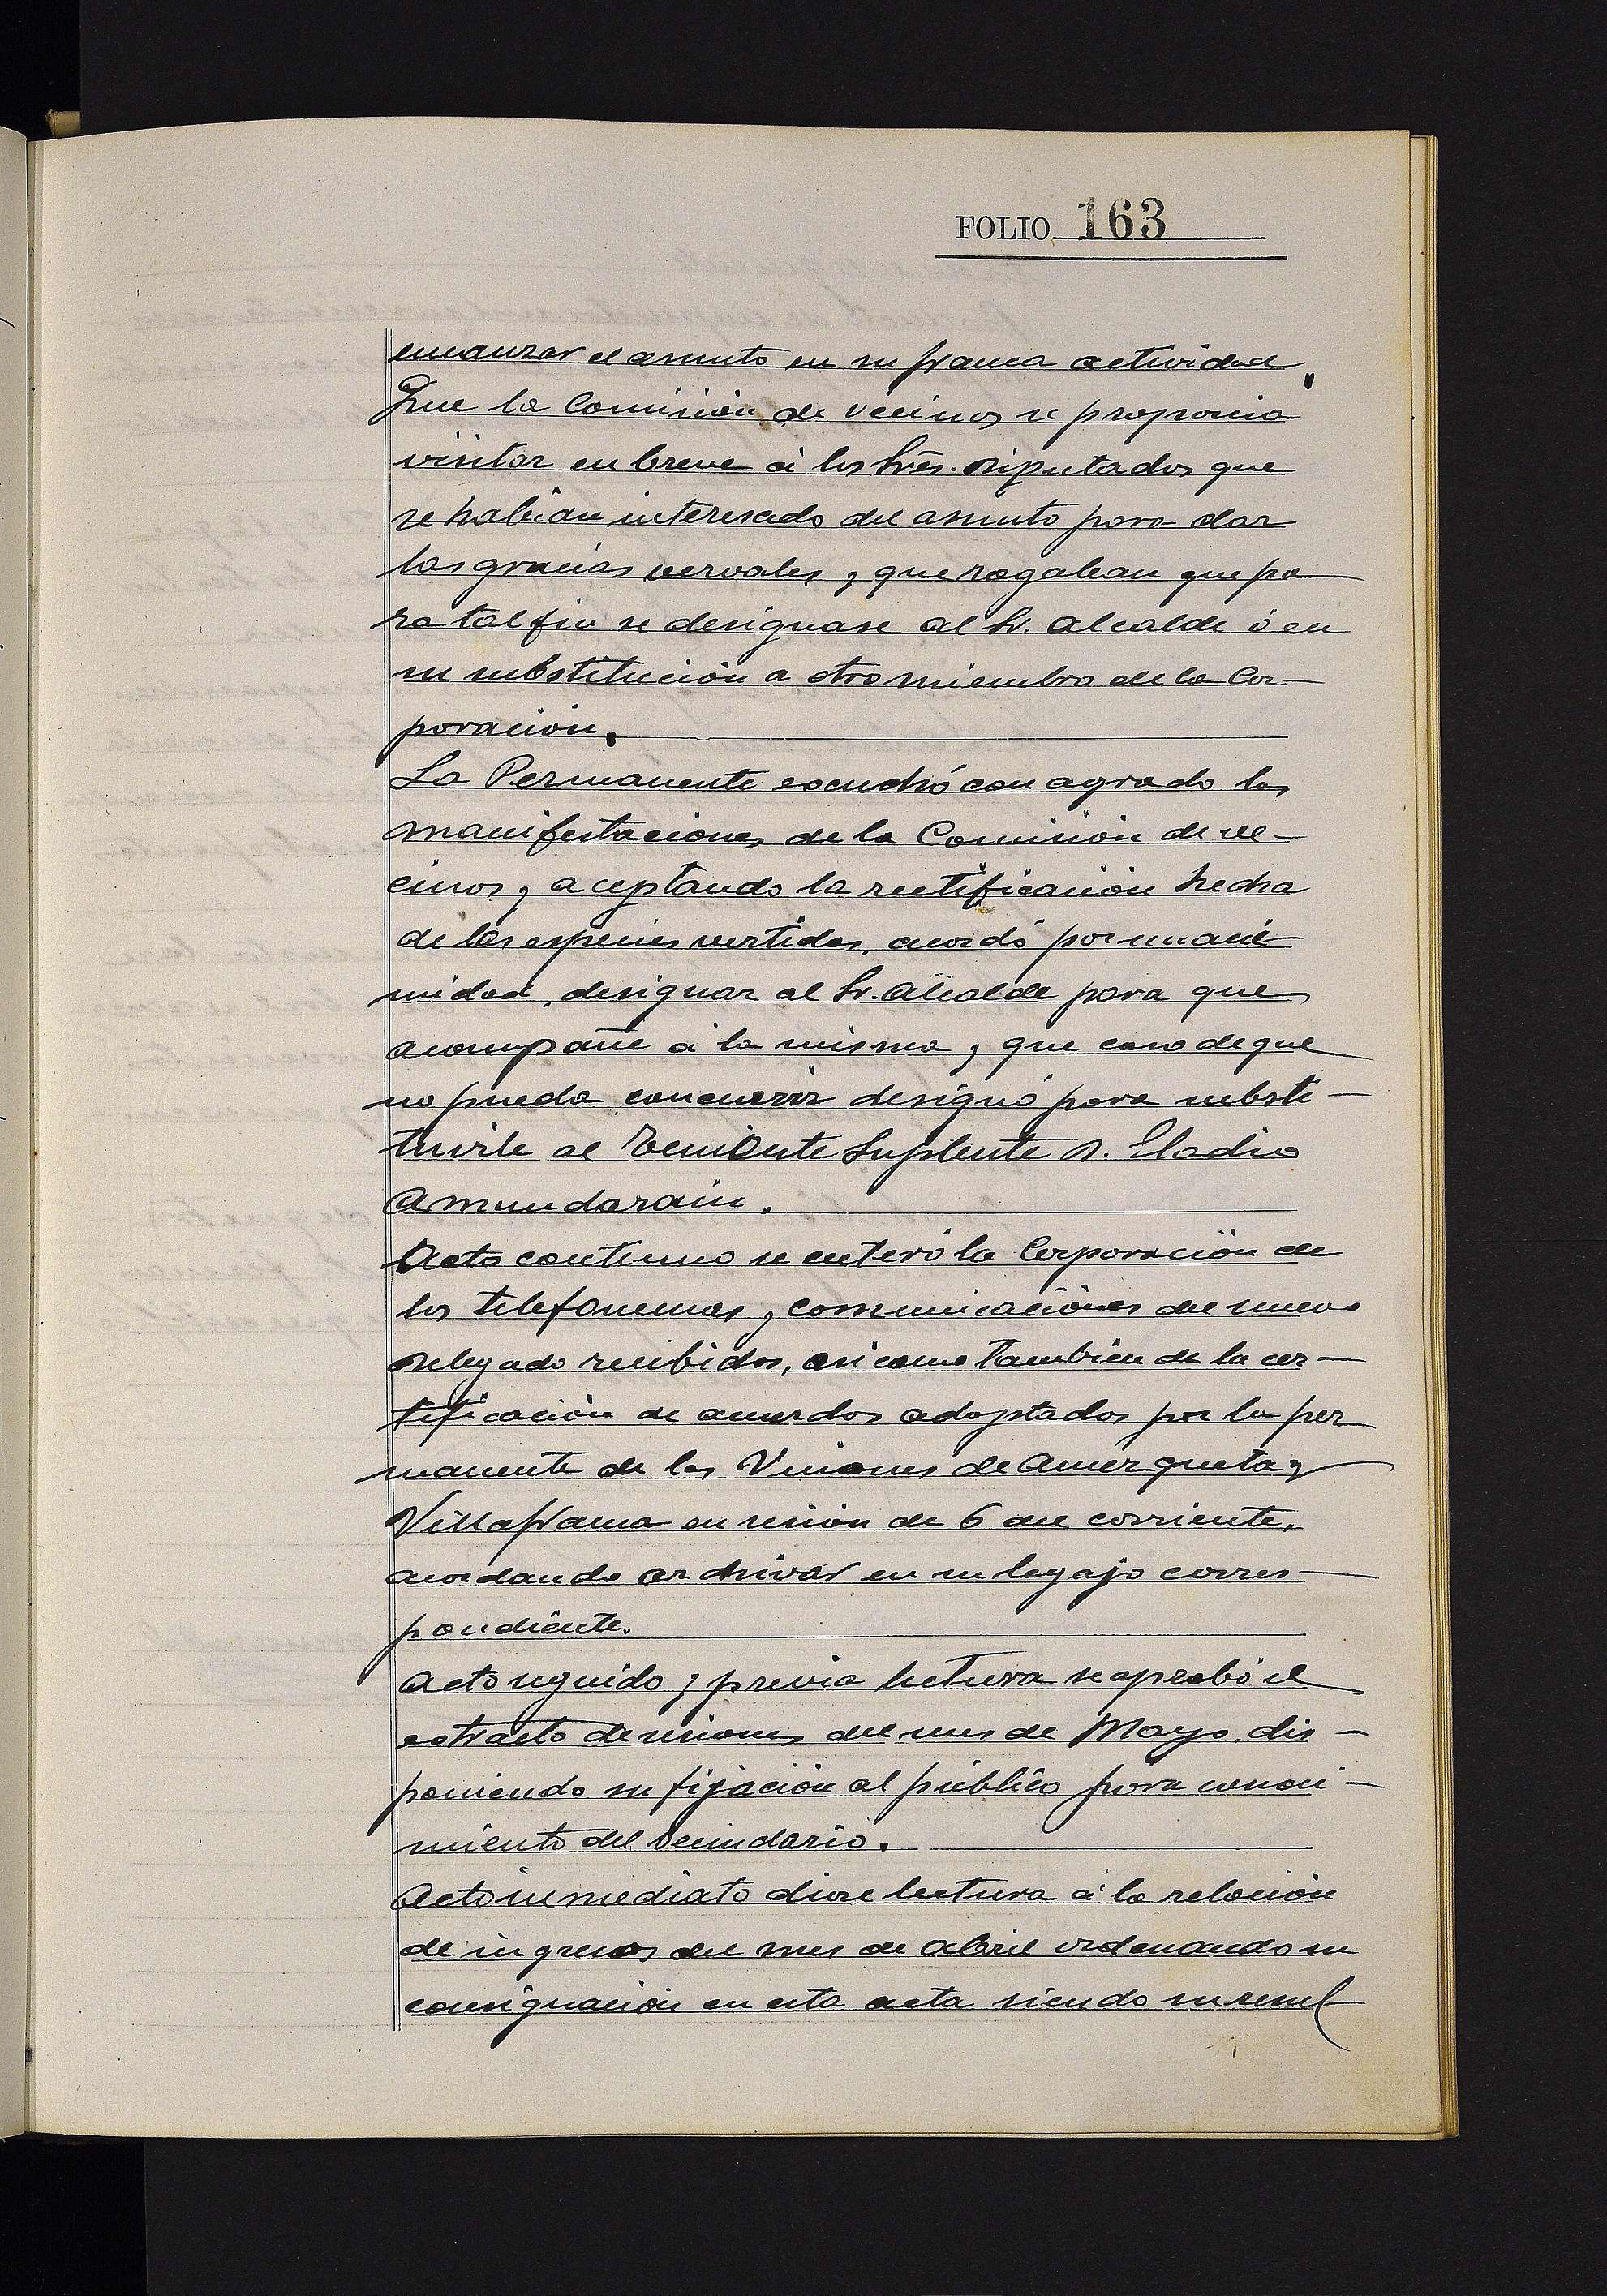 FOLIO 163
encauzar el asunto en su franca actividad.
Que la Comisión de vecinos se proponia
visitar en breve á los Srēs. Diputados que
se habian interesado del asunto para dar
las gracias vervales y que rogaban que pa
ra tal fin se designase al Sr. Alcalde ó en
su substitución a otro miembro de la Cor-
poración.
La Permanente escuchó con agrado las
manifestaciones de la Comisión de ve-
cinos y aceptando la rectificación hecha
de las especies vertidas, acordó por unani
midad, designar al Sr. Alcalde para que
acompañe á la misma y que caso de que
no pueda concurrir designó para substi-
tuirle al Teniente Suplente D. Eladio
Amundarain.
Acto continuo se enteró la Corporación de
los telefonemas y comunicaciones del nuevo
Delegado recibidos, asi como tambien de la cer-
tificación de acuerdos adoptados por la per
manente de las Uniones de Amezqueta y
Villafranca en sesión de 6 del corriente,
acordando archivar en su legajo corres-
pondiente.
Acto seguido y previa lectura se aprobó el
estracto de sesiones del mes de Mayo, dis-
poniendo su fijación al público para conoci-
miento del vecindario.
Acto inmediato diose lectura á la relación
de ingresos del mes de Abril ordenando su
consignación en esta acta siendo su resul